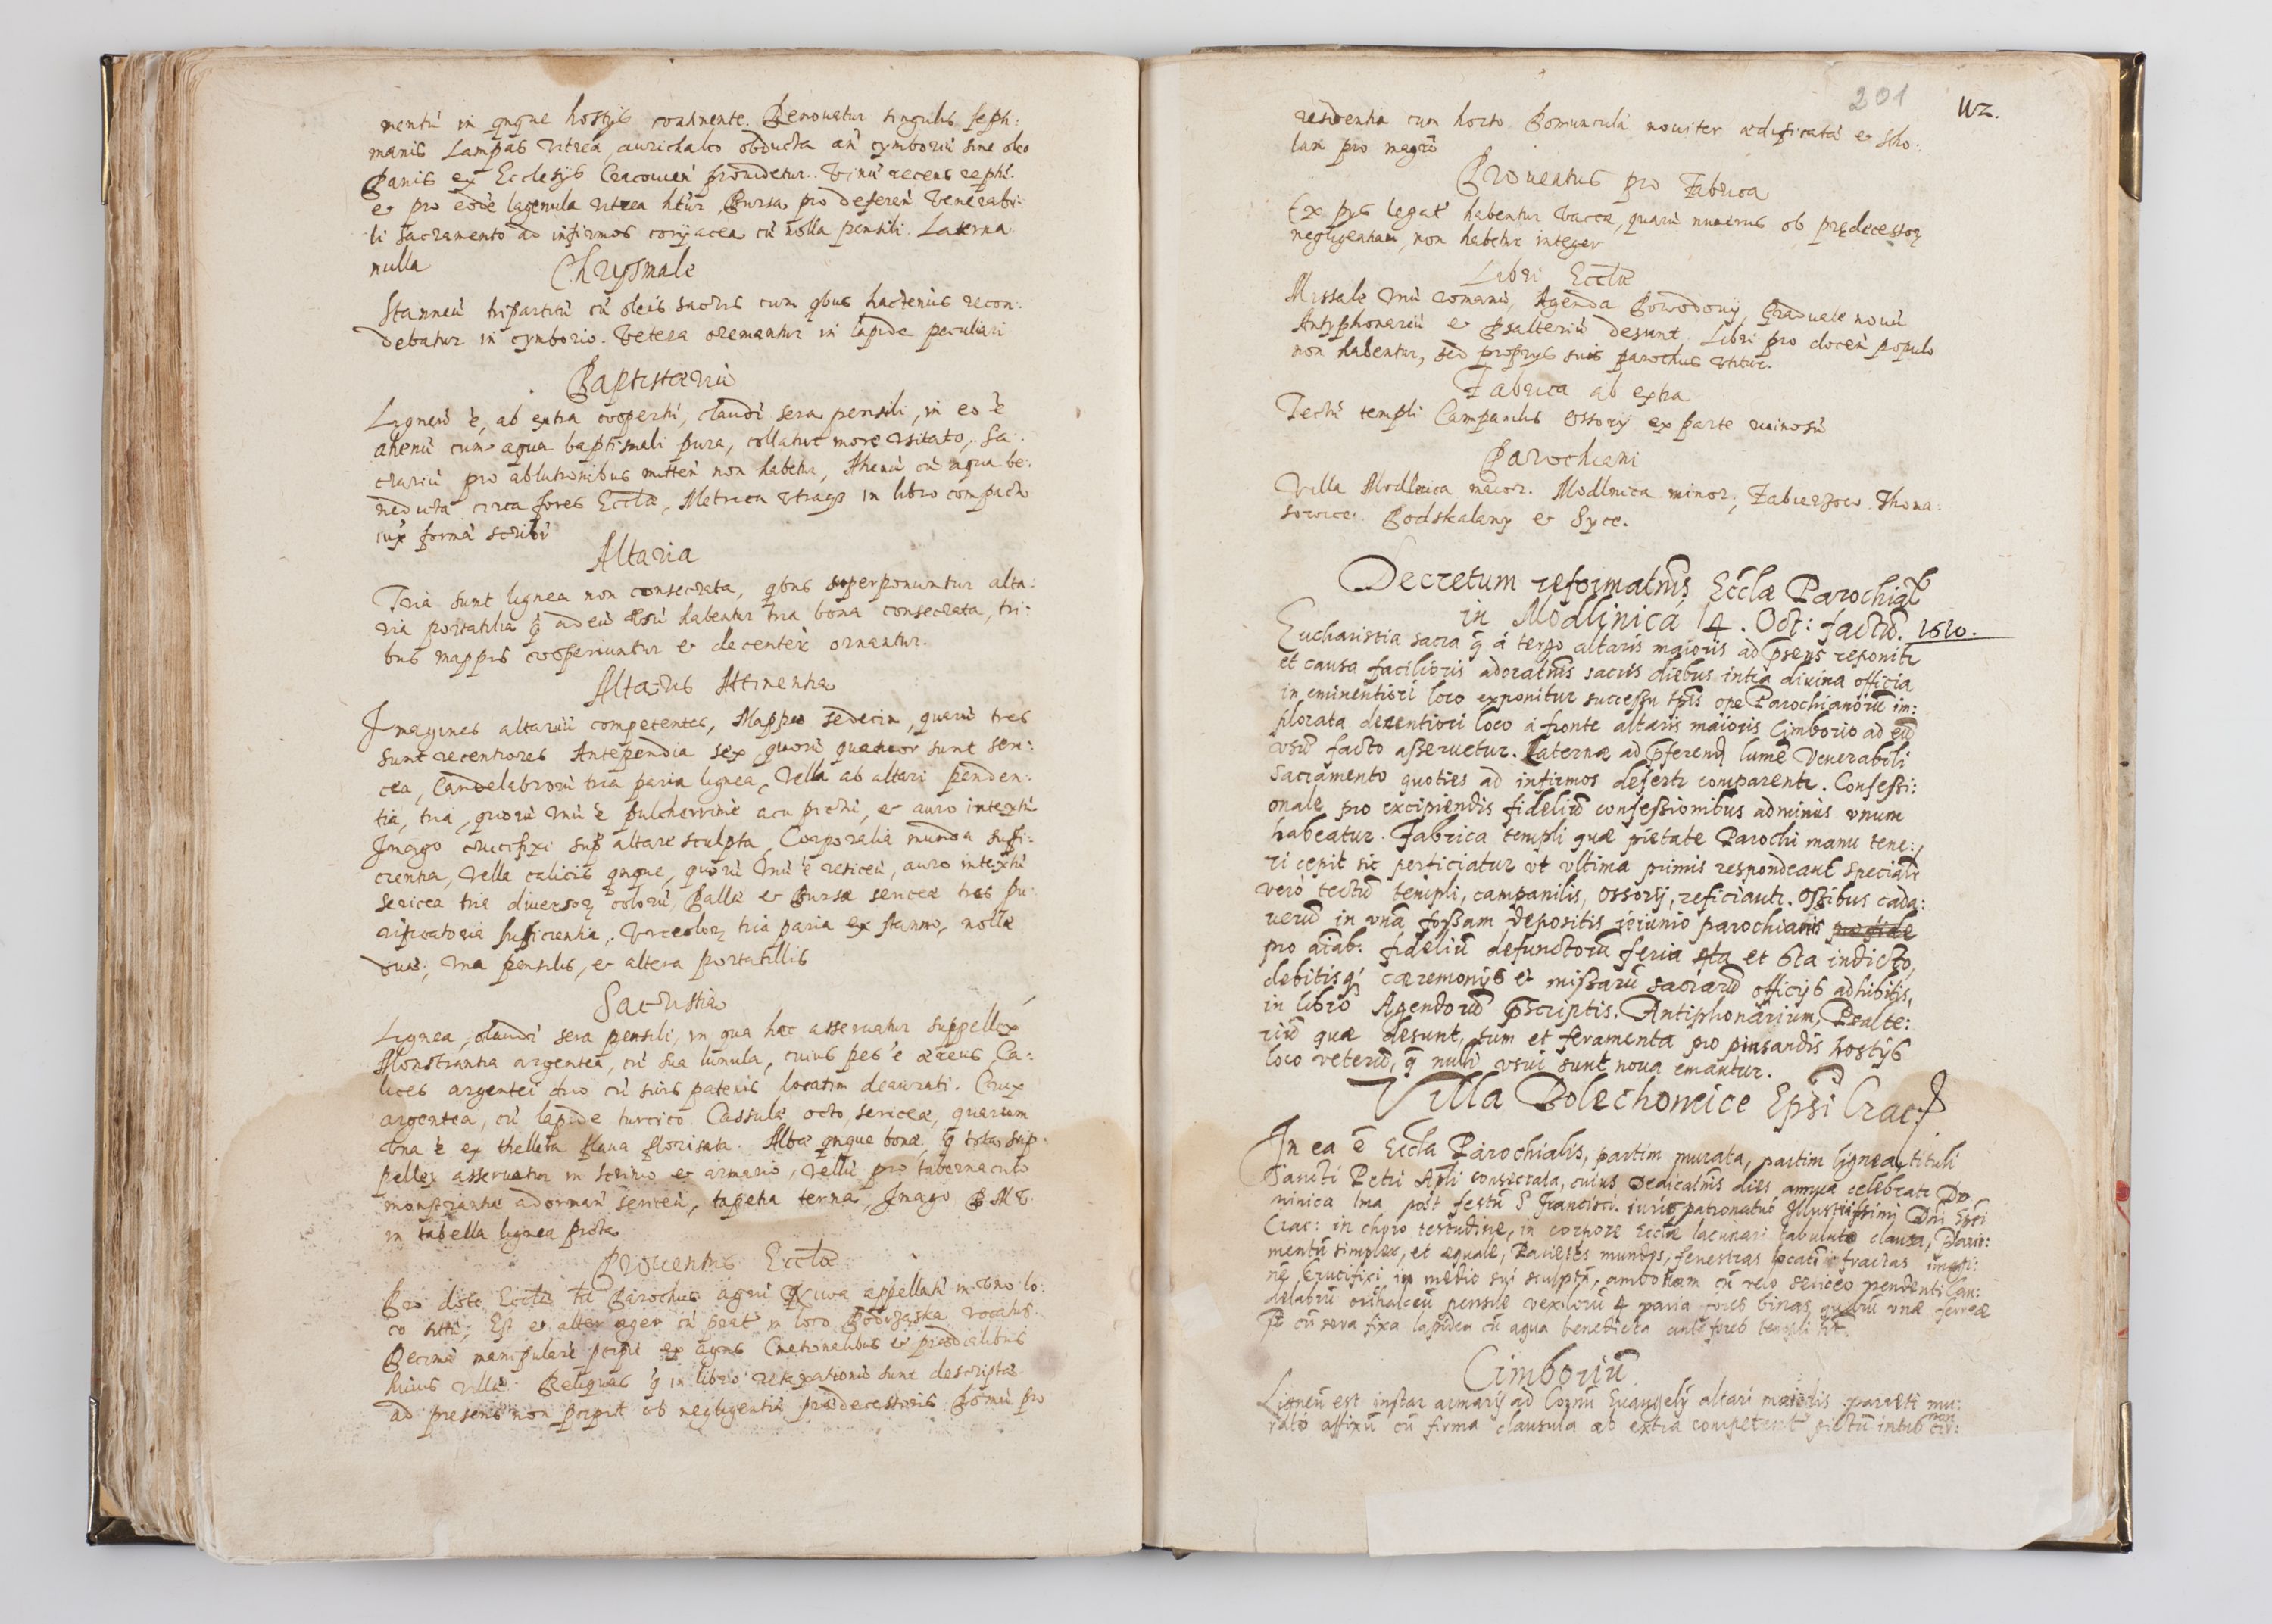 mentū in qnque hostys continente. Renovatur singulis septi:
manis Lampas vitrea aurichalco obducta an̄ cymboriū sine oleo
Panis ex Ecclesys Cracovien̄ providetur. Vinū recens
e pro eodē lagenula vitrea hītur, Bursa pro deferen̄ venerabi:
li sacramento ad infirmos coryacea cū nolla pensili. Laterna
nulla
Chrysmale
Stanneū tripartitū cū oleis sacris cum qbus hactenus recon:
debatur in cymborio. Vetera cremantur in lapide peculiari
Baptisteriū
Ligneū ē, ab extra coopertū, claudī sera pensili, in eo ē
ahenū cum aqua baptismali pura, collatur more usitato, Sa:
crariū pro ablutionibus mitten̄ non habetur, Ahenū cū aqua be:
nedicta circa fores Eccłæ, Metrica utraqz in libro compacto
iux formā scribī
Altaria
Tria sunt lignea non consecrata, qbus superponuntur alta:
ria portatilia q̄ ad eū usū habentur tria bona consecrata, tri:
bus mappis cooperiuntur e decenter ornantur.
Altaris Attinentia
Imagines altariū competentes, Mappæ sedecim, quarū tres
sunt recentiores Antependia sex, quorū quatuor sunt seri:
cea, Candelabrorū tria paria lignea, Vella ab altari penden:
tia, tria, quorū unū ē pulcherrimè acu pictū, e auro intextū
Imago crucifixi sup altare sculpta, Corporalia munda suffi:
cientia, Vella calicis qnque, quorū unū ē reticeū, auro intextū
sericea tria diversoꝝ colorū, Pallæ e Bursæ sericeæ tres pu:
rificatoria sufficientia, Urceoloꝝ tria paria ex stanno, nollæ
duæ, una pensilis, e altera portatillis
Sacristia
Lignea, claudī sera pensili, in qua hæc asservatur suppellex
Monstrantia argentea, cū sua lunula, cuius pes ē æreus, Ca:
lices argentei duo cū suis patenis locatim deaurati. Crux
argentea, cū lapide turcico. Cassulæ octo, sericeæ, quarum
una ē ex thelleta flava florisata. Albæ qnque bonæ, q̄ tota sup:
pellex asservatur in scrinio e armario, vellū pro tabernaculo
monstrantiæ adornan̄ sericeū, tapetia terna, Imago B M V.
in tabella lignea picta
Proventus Eccłæ
Pro dote Eccłæ ht̄ Parochus agrū Niwa appellatū in uno lo:
co sitū, Est e alter ager cū prat in loco vocatus.
Decimā manipularē pcipit ex agris Cmetonalibus e prædialibus
huius villæ. Reliquas q̄ in libro retaxationū sunt descriptæ
ad præsens non pcipit ob negligentiā prædecessoris. Domū pro
201
112.
residentia cum horto. Domunculā noviter ædificatā e scho:
lam pro magrō
Proventus pro Fabrica
Ex pys legat habentur vaccæ, quarū numerus ob prędecessoꝝ
negligentiam, non habetur integer
Libri Eccłæ
Missale unū romanū, Agenda Powodowy, Graduale novū
Antyphonariū e Psalteriū desunt. Libri pro docen̄ populo
non habentur, sed proprys suis parochus utitur.
Fabrica ab extra
Tectū templi Campanilis Ossory ex parte ruinosū
Parochiani
Villa Modlnica maior. Modlnica minor, Zabierzow Thoma:
sowice. Podskalany e Syce.
Decretum reformatnīs Eccłæ Parochial
in Modlinica 14. Oct: factū. 1610.
Eucharistia sacra q̄ á tergo altaris maioris ad pñsens reponitr
et causa facilioris adoratnīs sacris diebus intra divina officia
in eminentiori loco exponitur successu tpis ope Parochianorū im:
plorata decentiori loco á fronte altaris maioris Cimborio ad eūd
usū facto asservetur. Laternæ ad pferend lumē Venerabili
Sacramento quoties ad infirmos defertr comparentr. Confessi:
onale pro excipiendis fidelium confessionibus adminus unum
habeatur. Fabrica templi quæ pietate Parochi manu tene:
ri cepit sic perficiatur ut ultima primis respondeant specialr
verò tectū templi, campanilis, ossory, reficiantr. Ossibus cada:
verū in unā fossam depositis ieiunio parochianis
pro aiab. fidelium defunctorū feria 4ta et 6ta indicto,
debitisq; cæremonys et missarū sacrarū officys adhibitis,
in libro Agendorū pscriptis. Antiphonarium, Psalte:
riū quæ desunt, tum et feramenta pro pinsandis hostys
loco veterū, q̄ nulli usui sunt nova emantur.
Villa Bolechowice Epsi Crac.
In ea ē Eccła Parochialis, partim murata, partim lignea, tituli
Sancti Petri Apli consecrata, cuius Dedicatnīs dies annua celebratr Do
minica Ima post festū S Francisci. iuris patronatus Illustrissimi Dni Epsi
Crac: in choro testudine, in corpore Eccłæ lacunari tabulato clausa, Pavi:
mentū simplex, et æquale, Parietes mundos, fenestras locatī fractas imagi:
nē Crucifixi in medio sui sculptū, ambonam cū velo sericeo pendenti Can:
delabrū orihalceū pensile vexilorū 4 paria fores binas quarū unæ ferreæ
cū sera fixa lapidem cū aqua benedicta ante fores templi
Cimboriū
Ligneū est instar armary ad Cornū Evangely altari maioris parieti mu:
rato affixū cū firma clausula ab extra competent pictū intus non cir: